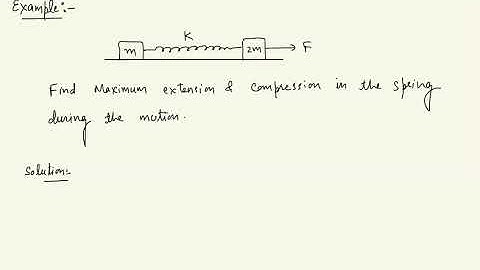 Example:-
K
m 2m F
Find Maximum extension & compression in the spring
during the motion.
Solution: